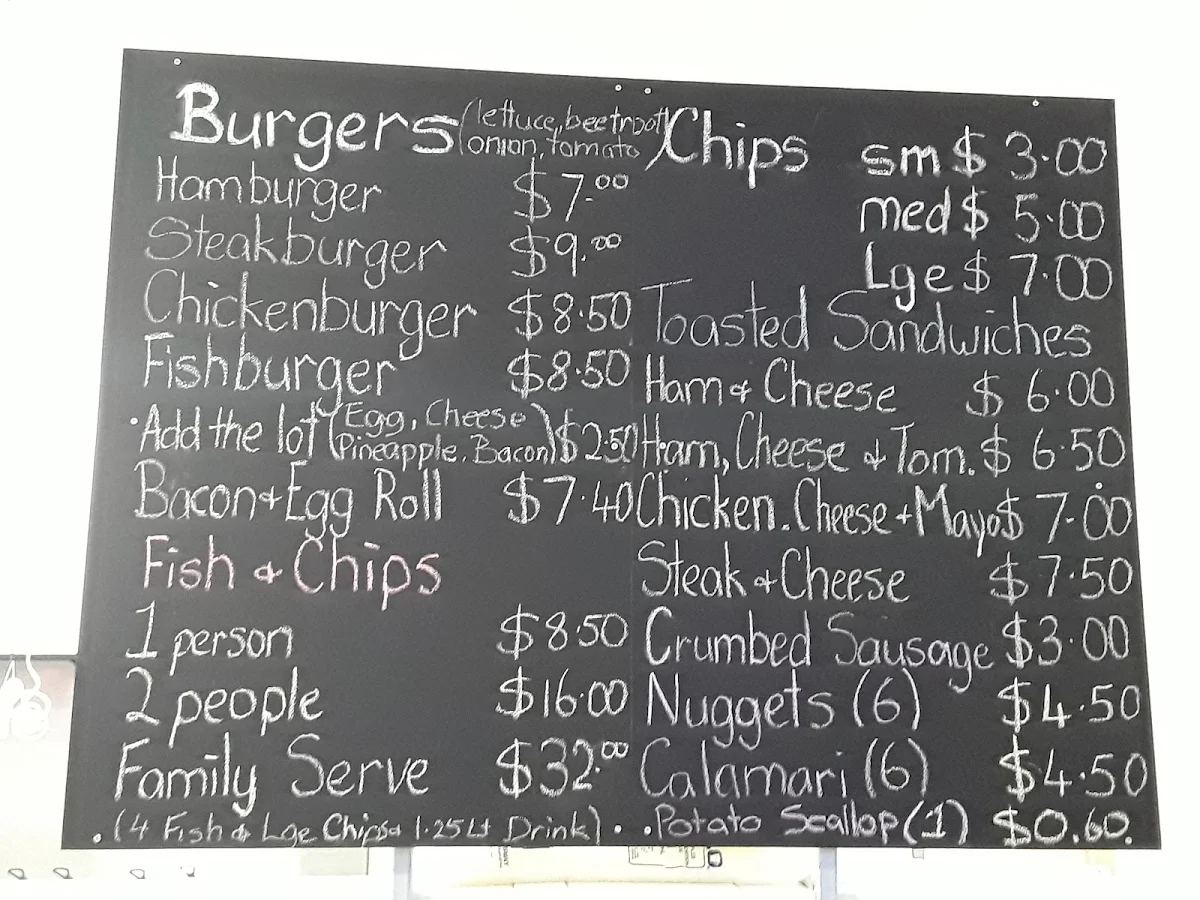 Burgers (lettuce, beetroot
onion, tomato)
Hamburger $7.00
Steakburger $9.00
Chickenburger $8.50
Fishburger $8.50
·Add the lot (Egg, Cheese
Pineapple, Bacon) $2.50
Bacon + Egg Roll $7.40
Fish & Chips
1 person $8.50
2 people $16.00
Family Serve $32.00
. (4 Fish & Lge Chips & 1.25Lt Drink) .
Chips sm $3.00
med $5.00
Lge $7.00
Toasted Sandwiches
Ham & Cheese $6.00
Ham, Cheese & Tom. $6.50
Chicken. Cheese + Mayo $7.00
Steak & Cheese $7.50
Crumbed Sausage $3.00
Nuggets (6) $4.50
Calamari (6) $4.50
. Potato Scallop (1) $0.60.